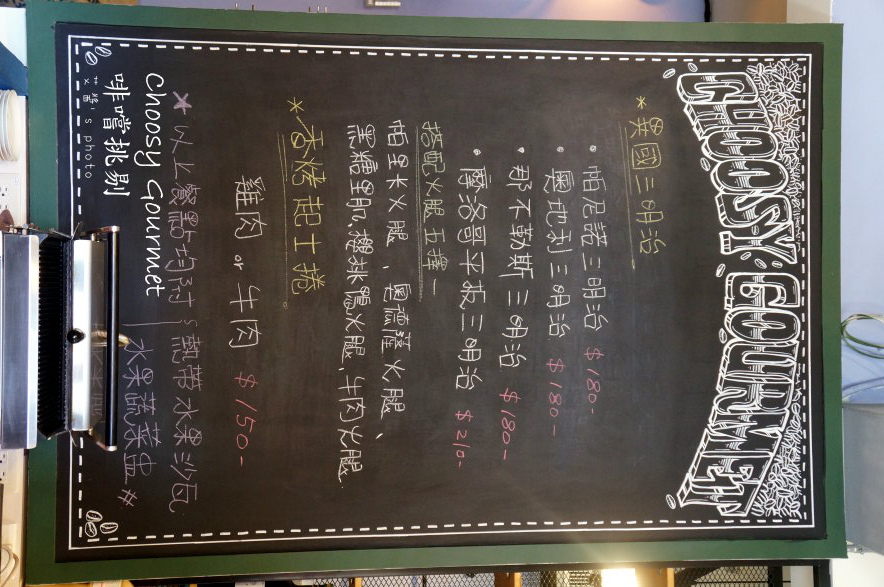 CHOOSY GOURMET
*異國三明治
• 帕尼諾三明治 $180-
• 奧地利三明治 $180-
• 那不勒斯三明治 $180-
• 摩洛哥平板三明治 $210-
搭配火腿五擇一
帕里卡火腿、奧德薩火腿、
黑糖里肌、櫻桃鴨火腿、牛肉火腿
*香烤起士捲
雞肉 or 牛肉 $150-
*以上餐點均附 熱帶水果沙瓦
水果蔬菜盅
Choosy Gourmet
啡嚐挑剔
's photo